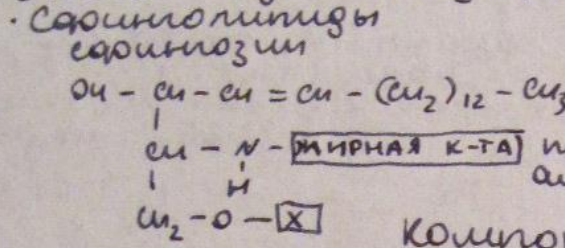 · Сфинголипиды
сфингозин
OH - CH - CH = CH - (CH2)12 - CH3
CH - N - ЖИРНАЯ К-ТА
H
CH2 - O - X